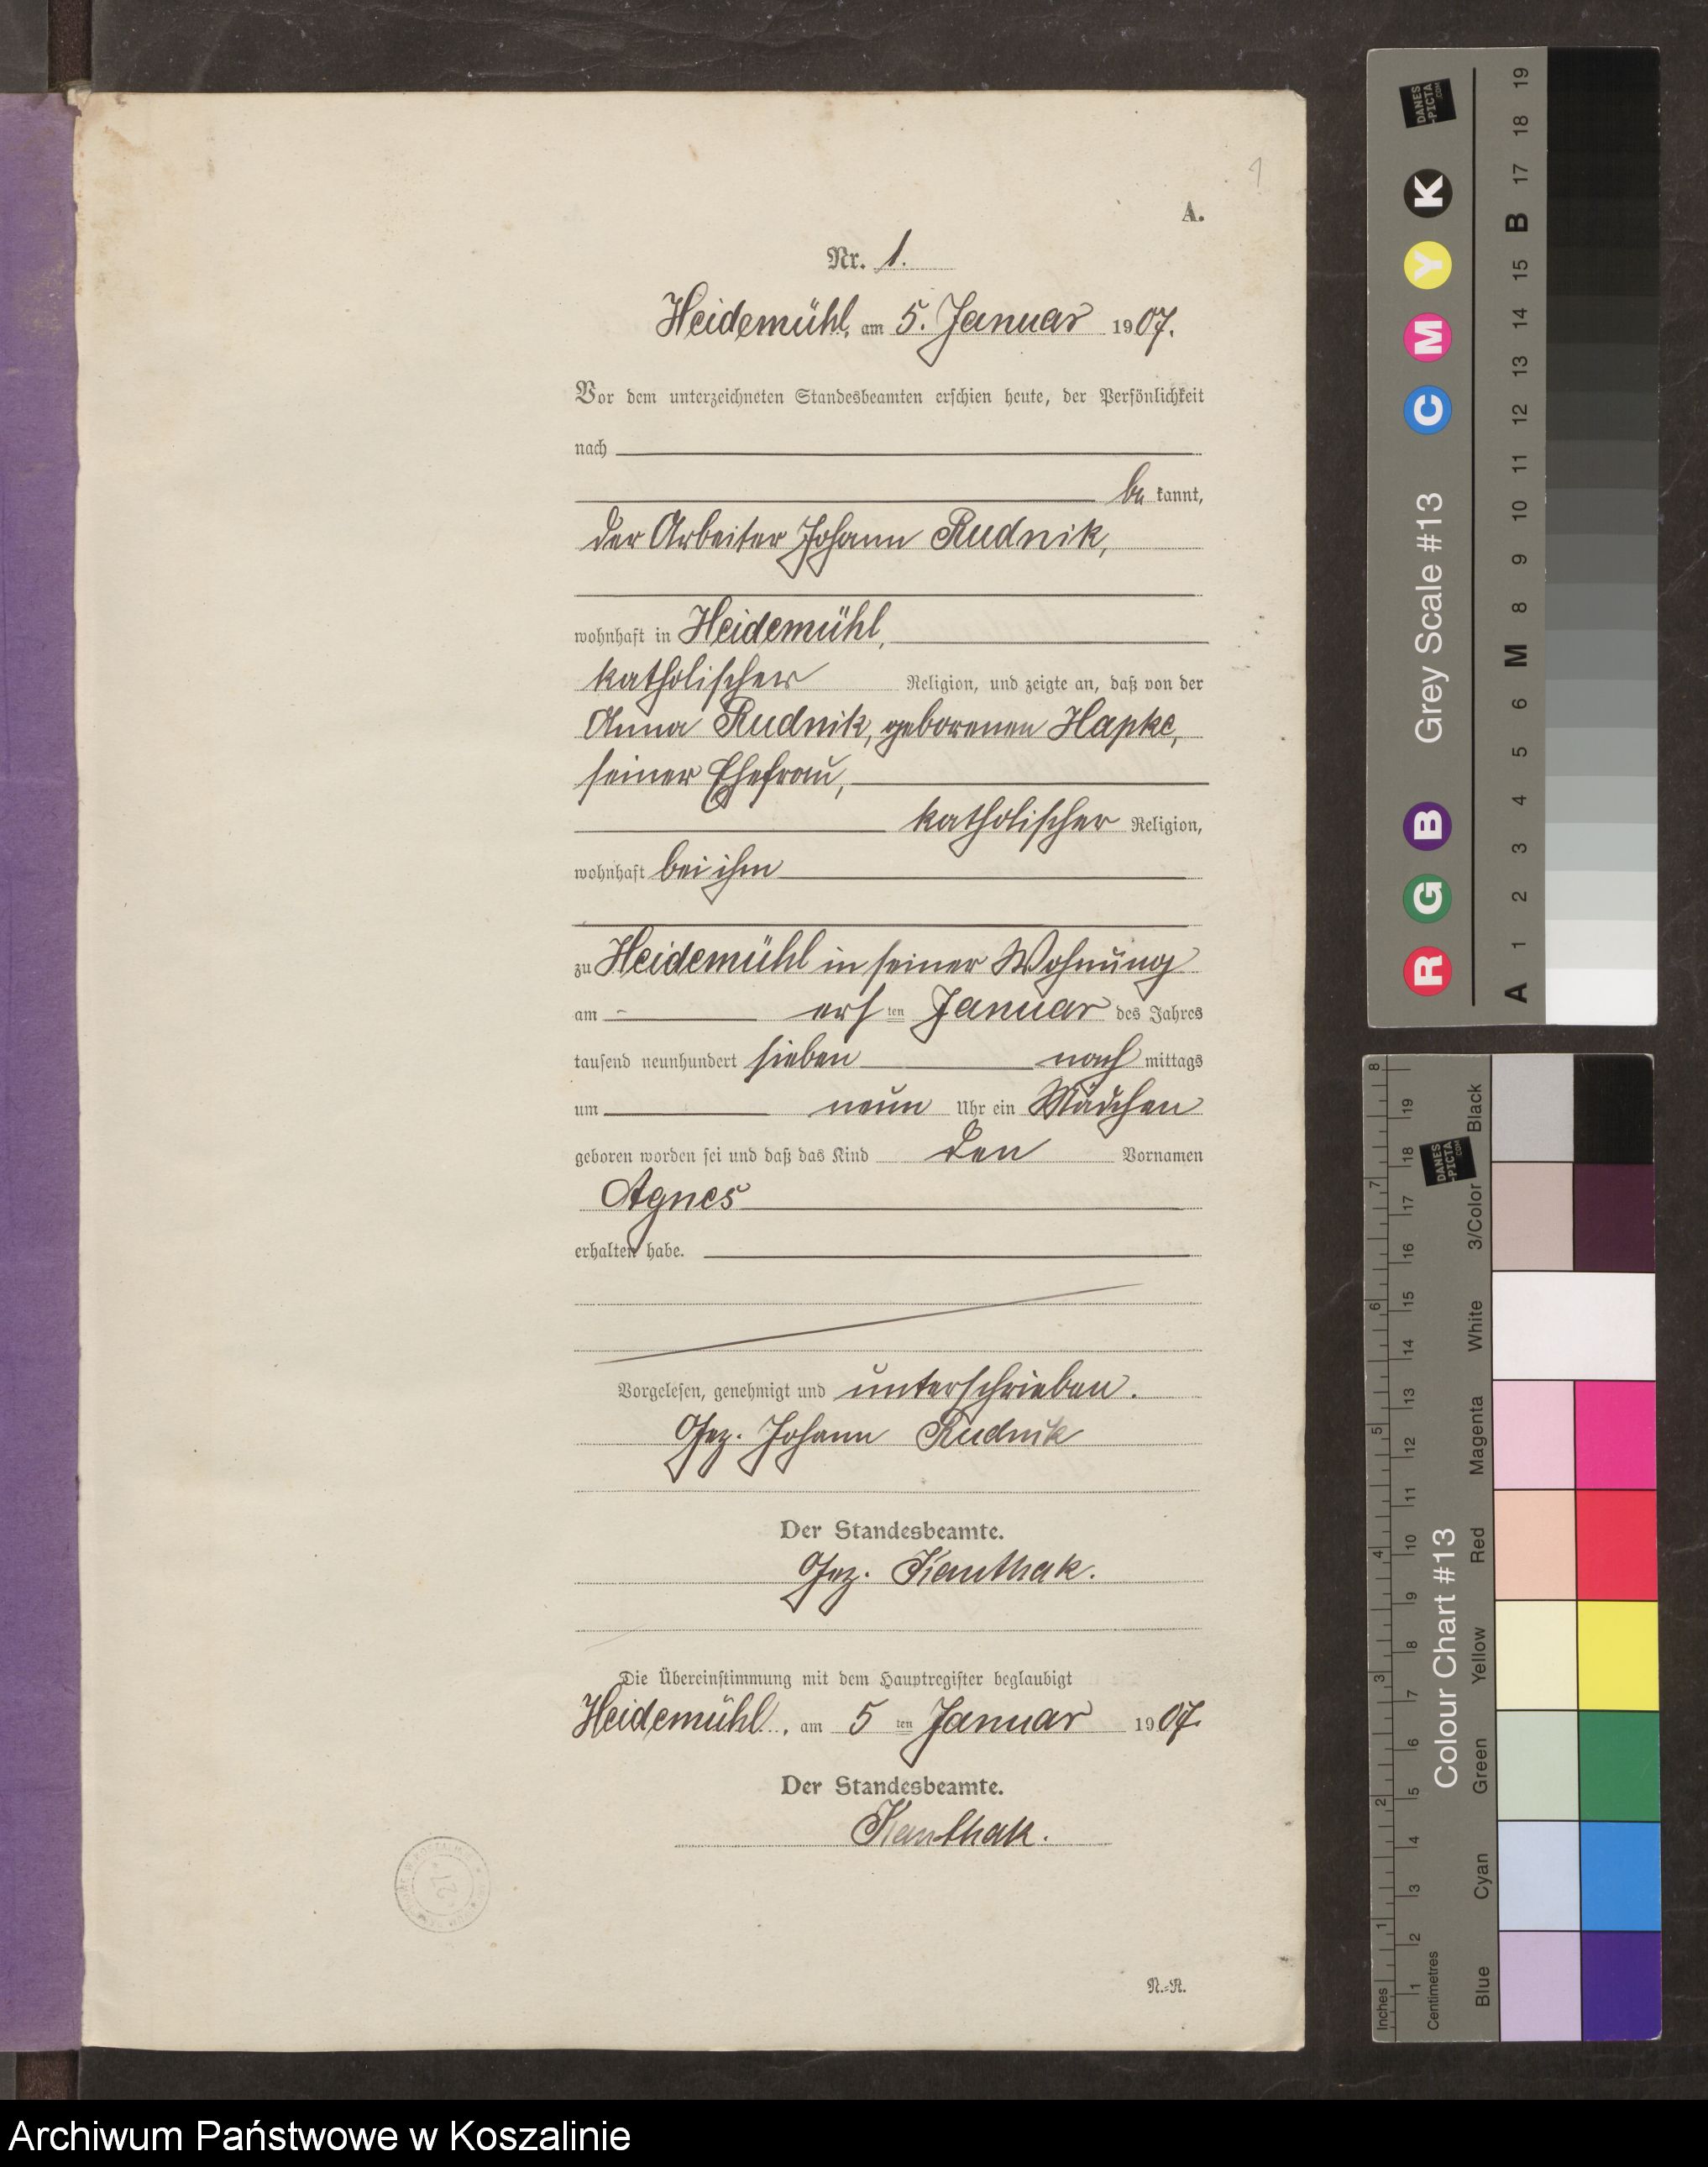 1
A.
Nr. 1.
Heidemühl, am 5. Januar 1907.
Vor dem unterzeichneten Standesbeamten erschien heute, der Persönlichkeit
nach
be kannt,
der Arbeiter Johann Rudnik,
wohnhaft in Heidemühl,
katholischer Religion, und zeigte an, daß von der
Anna Rudnik, geborenen Hapke,
seiner Ehefrau,
katholischer Religion,
wohnhaft bei ihm
zu Heidemühl in seiner Wohnung
am ersten Januar des Jahres
tausend neunhundert sieben nach mittags
um neun Uhr ein Mädchen
geboren worden sei und daß das Kind den Vornamen
Agnes
erhalten habe.
Vorgelesen, genehmigt und unterschrieben.
Gez. Johann Rudnik
Der Standesbeamte.
Gez. Kanthak.
Die Übereinstimmung mit dem Hauptregister beglaubigt
Heidemühl, am 5 ten Januar 1907.
Der Standesbeamte.
Kanthak.
N.=R.
Grey Scale #13
R G B C M Y K
A 1 2 3 4 5 6 M 8 9 10 11 12 13 14 15 B 17 18 19
DANES
-PICTA
.COM
Colour Chart #13
Blue Cyan Green Yellow Red Magenta White 3/Color Black
Inches 1 2 3 4 5 6 7 8
Centimetres 1 2 3 4 5 6 7 8 9 10 11 12 13 14 15 16 17 18 19
DANES
-PICTA
.COM
Archiwum Państwowe w Koszalinie